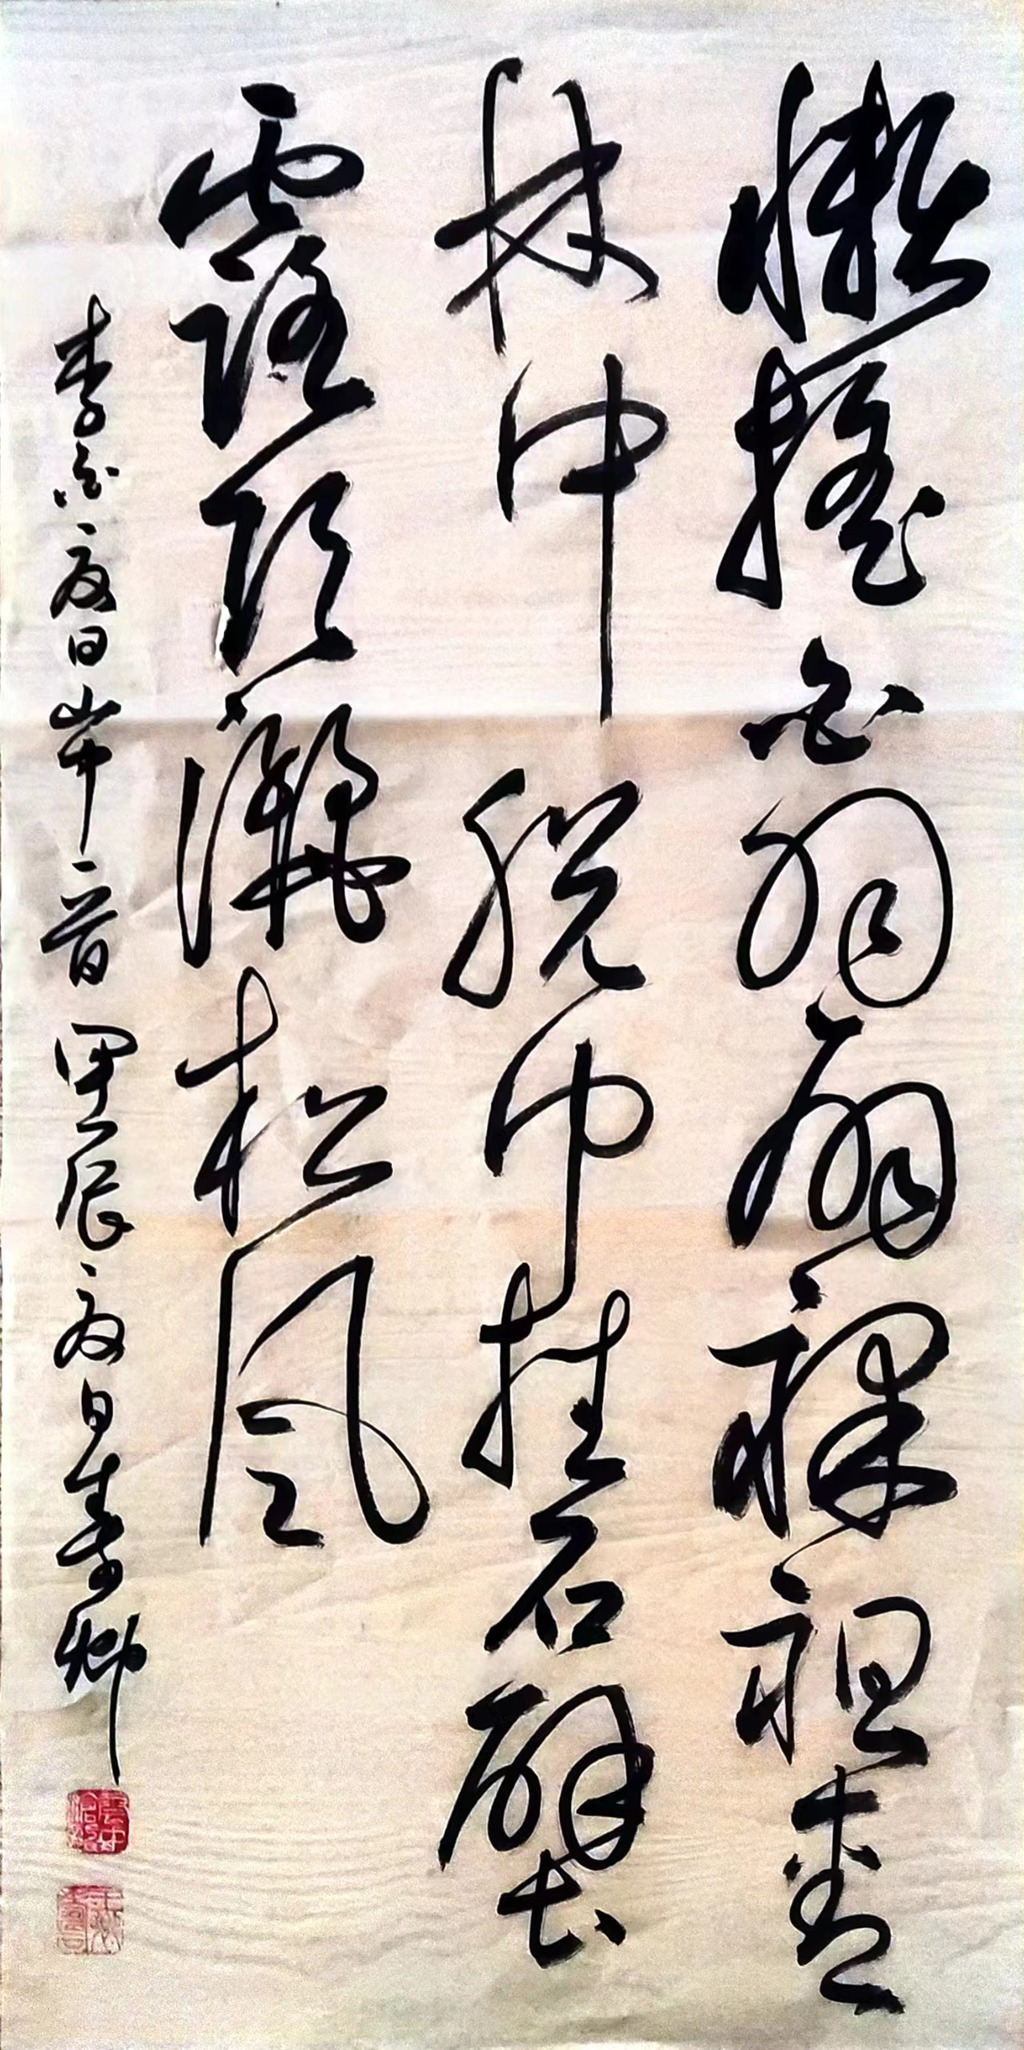 懒摇白羽扇裸袒青
林中脱巾挂石壁
露顶洒松风
李白夏日山中一首 甲辰夏日